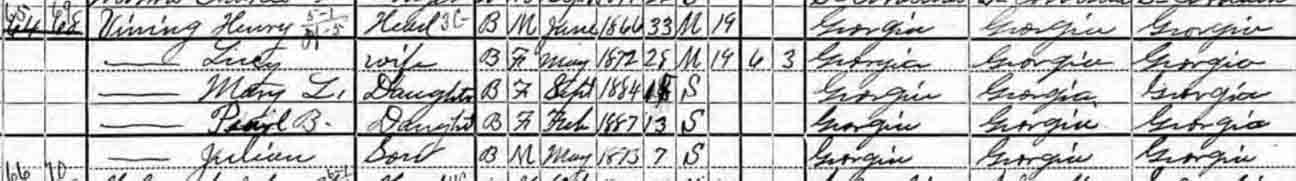 Vining Henry Head B M June 1866 33 M 19 Georgia Georgia Georgia
— Lucy wife B F May 1872 28 M 19 6 3 Georgia Georgia Georgia
— Mary L. Daughter B F Sept 1884 S Georgia Georgia Georgia
— Pearl B. Daughter B F Feb 1887 13 S Georgia Georgia Georgia
— Julian Son B M May 1893 7 S Georgia Georgia Georgia
66 70